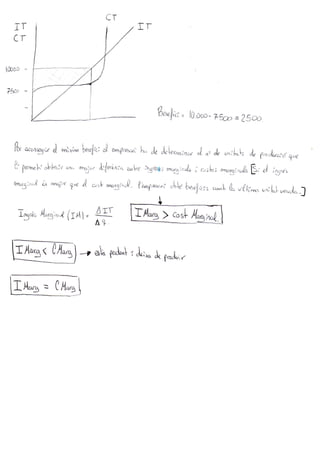 CT
IT
IT
CT
10000
7500
Benefici = 10.000 - 7500 = 2500
Per aconseguir el màxim benefici el empresari ha de determinar el nº de unitats de producció que
li permeti obtenir una major diferència entre ingressos marginals i costos marginals [Si el ingrés
marginal és major que el cost marginal. l'empresari obté beneficis amb la última unitat venuda.]
Ingrés Marginal (IM) = ΔIT
Δq
I Marg > cost Marginal
I Marg < C Marg → està perdent i deixa de produir
I Marg = C Marg